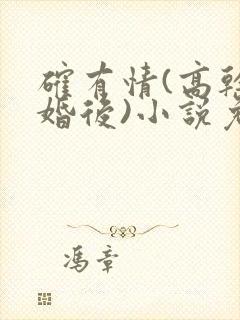 確有情(高幹
婚後)小說免
馮章